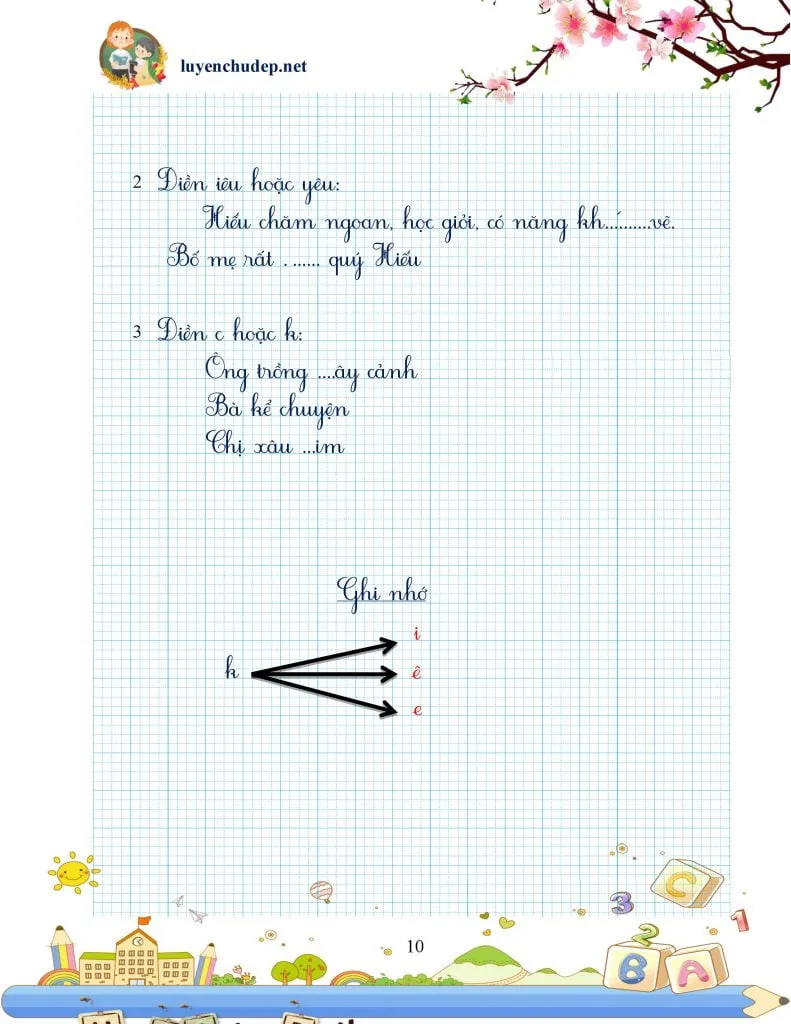 luyenchudep.net
2 Điền iêu hoặc yêu:
Hiếu chăm ngoan, học giỏi, có năng kh...´......vẽ.
Bố mẹ rất . ...... quý Hiếu
3 Điền c hoặc k:
Ông trồng ....ây cảnh
Bà kể chuyện
Chị xâu ...im
Ghi nhớ
i
k ê
e
C
3
1
2
B A
10